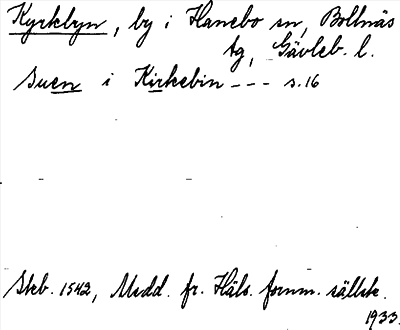 Kyrkbyn, by i Hanebo sn, Bollnäs
tg, Gävleb. l.
Suen i Kirkebin --- s.16
Skb. 1542, Medd. fr. Häls. fornm. sällsk.
1933.